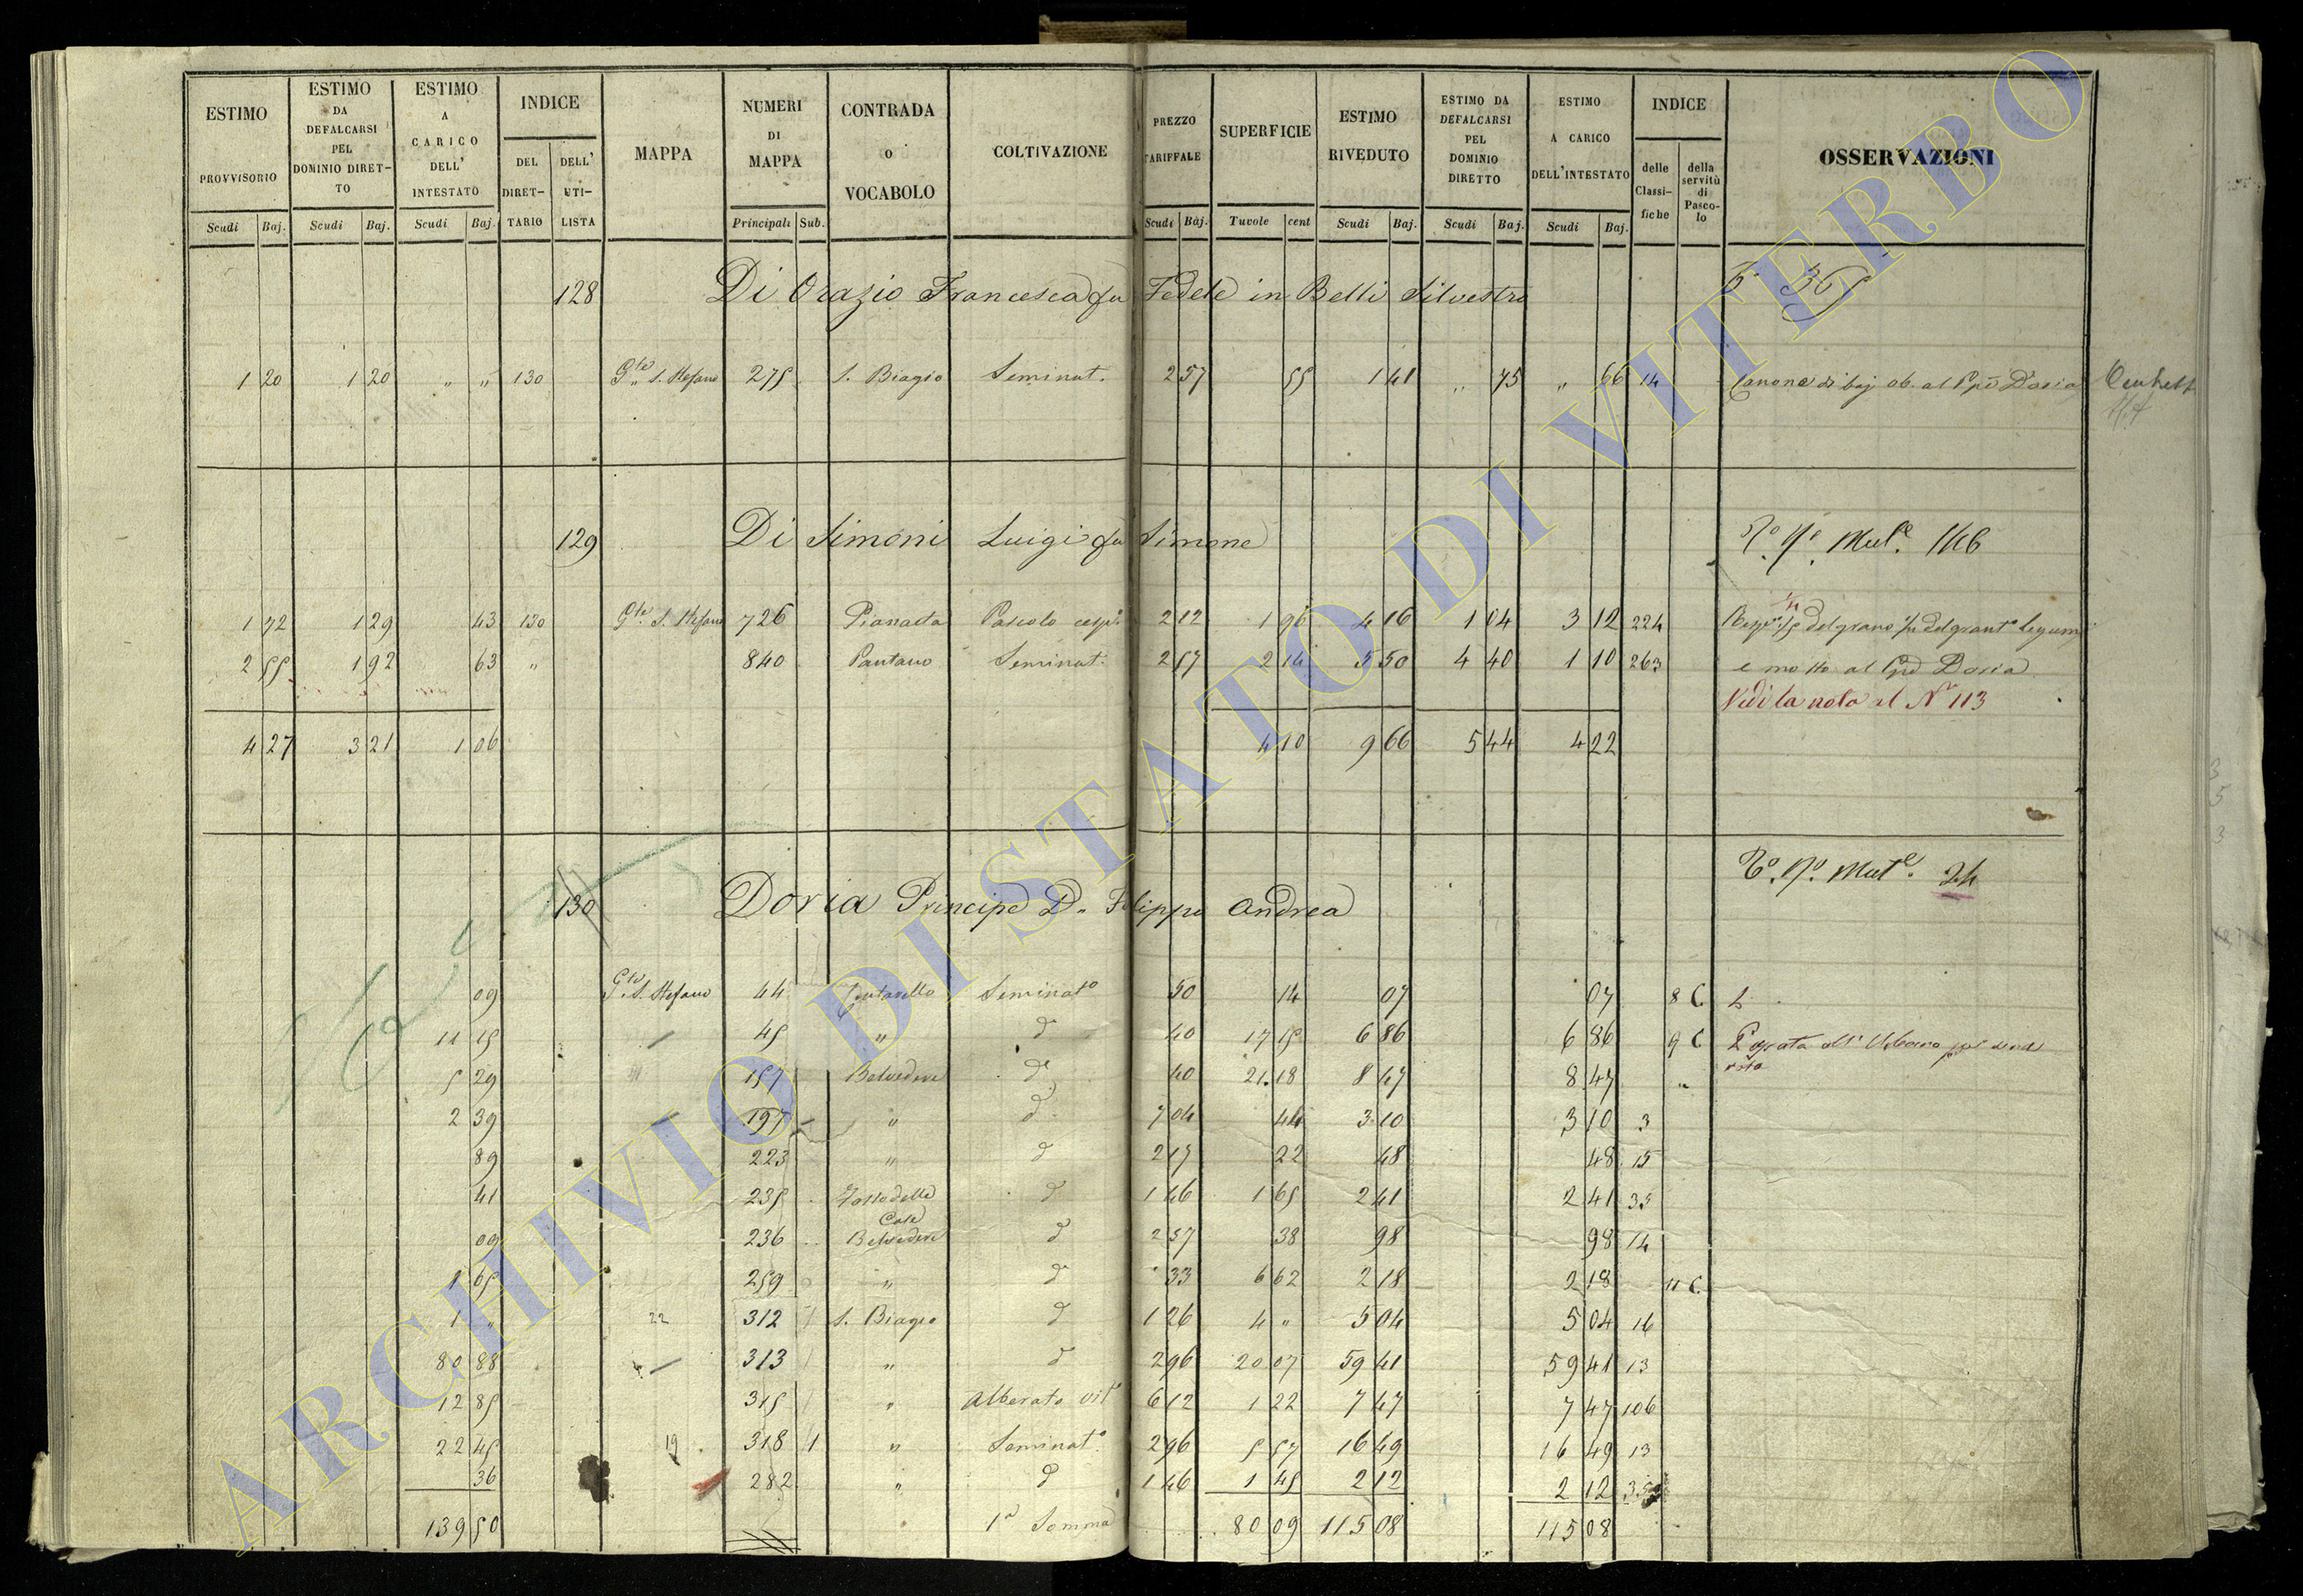 ESTIMO PROVVISORIO Scudi Baj.
ESTIMO DA DEFALCARSI PEL DOMINIO DIRETTO Scudi Baj.
ESTIMO A CARICO DELL' INTESTATO Scudi Baj.
INDICE DEL DIRETTARIO DELL' UTILISTA
MAPPA
NUMERI DI MAPPA Principali Sub.
CONTRADA O VOCABOLO
COLTIVAZIONE
PREZZO TARIFFALE Scudi Baj.
SUPERFICIE Tavole cent
ESTIMO RIVEDUTO Scudi Baj.
ESTIMO DA DEFALCARSI PEL DOMINIO DIRETTO Scudi Baj.
ESTIMO A CARICO DELL'INTESTATO Scudi Baj.
INDICE delle Classifiche della servitù di Pascolo
OSSERVAZIONI
128 Di Orazio Francesca fu Fedele in Belli Silvestro
1 20 1 20 " " 130 Gte S. Stefano 275 S. Biagio Seminat. 2 57 55 1 41 " 75 " 66 14 Canone di baj. 06 al Ppe Doria
129 Di Simoni Luigi fu Simone To No Mute. 146
1 72 1 29 43 130 Gte S. Stefano 726 Pianacta Pascolo cesp. 2 12 1 96 4 16 1 04 3 12 224
2 55 1 92 63 " 840 Pantano Seminat. 2 57 2 14 5 50 4 40 1 10 263 e mosto al Ppe Doria
Vedi la nota al No 113
4 27 3 21 1 06 4 10 9 66 5 44 4 22
130 Doria Principe D. Filippo Andrea To. No. Mute. 24
09 Gte S. Stefano 44 Seminato 50 14 07 07 8 C.
11 15 45 " d 40 17 15 6 86 6 86 9 C
5 29 157 Belvedere d 40 21.18 8 47 8 47 "
2 39 197 " d 7 04 44 3 10 3 10 3
89 223 " d 2 17 22 48 48 15
41 235 Fosso delle Case d 1 46 1 65 2 41 2 41 35
09 236 Belvedere d 2 57 38 98 98 14
1 65 259 " d 33 6 62 2 18 2 18 11 C.
1 " 22 312 S. Biagio d 1 26 4 " 5 04 5 04 16
80 88 313 " d 2 96 20 07 59 41 59 41 13
12 85 315 " Alberato vit. 6 12 1 22 7 47 7 47 106
22 45 19 318 1 " Seminat. 2 96 5 57 16 49 16 49 13
36 282 " d 1 46 1 45 2 12 2 12 35
139 50 1a Somma 80 09 115 08 115 08
ARCHIVIO DI STATO DI VITERBO